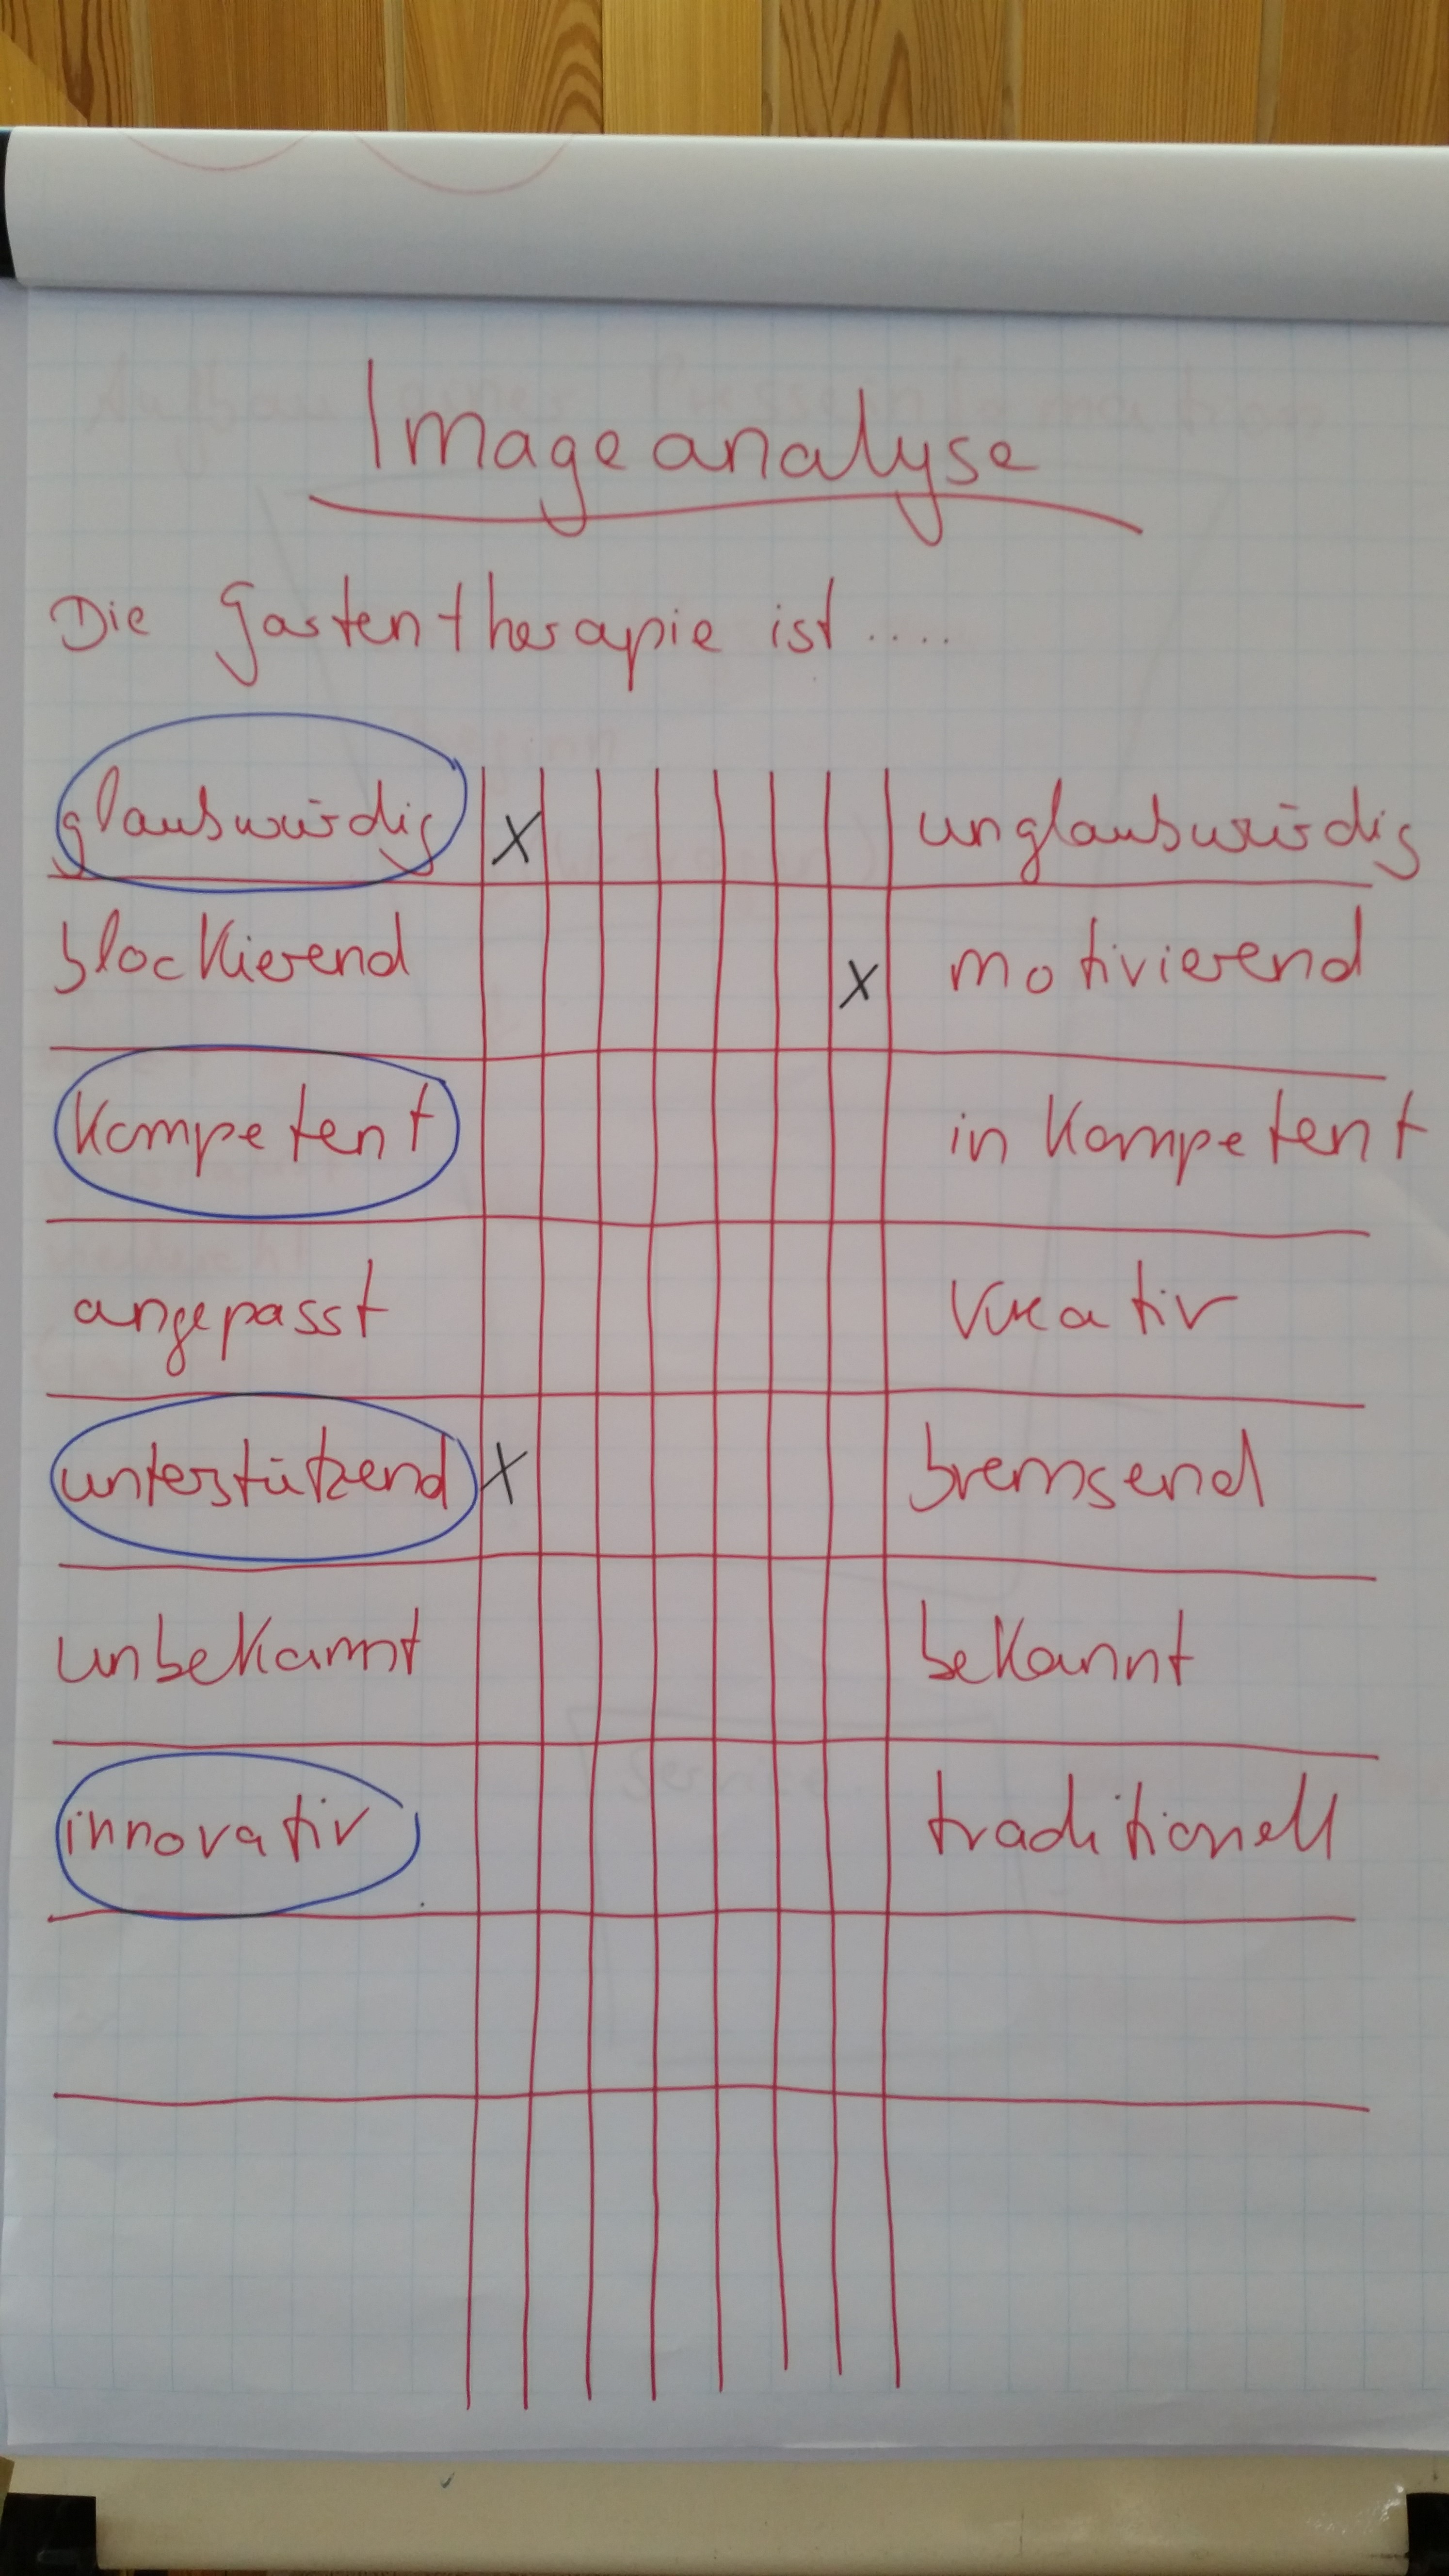 Imageanalyse
Die Gartentherapie ist ....
glaubwürdig X unglaubwürdig
blockierend X motivierend
kompetent inkompetent
angepasst kreativ
unterstützend X bremsend
unbekannt bekannt
innovativ traditionell